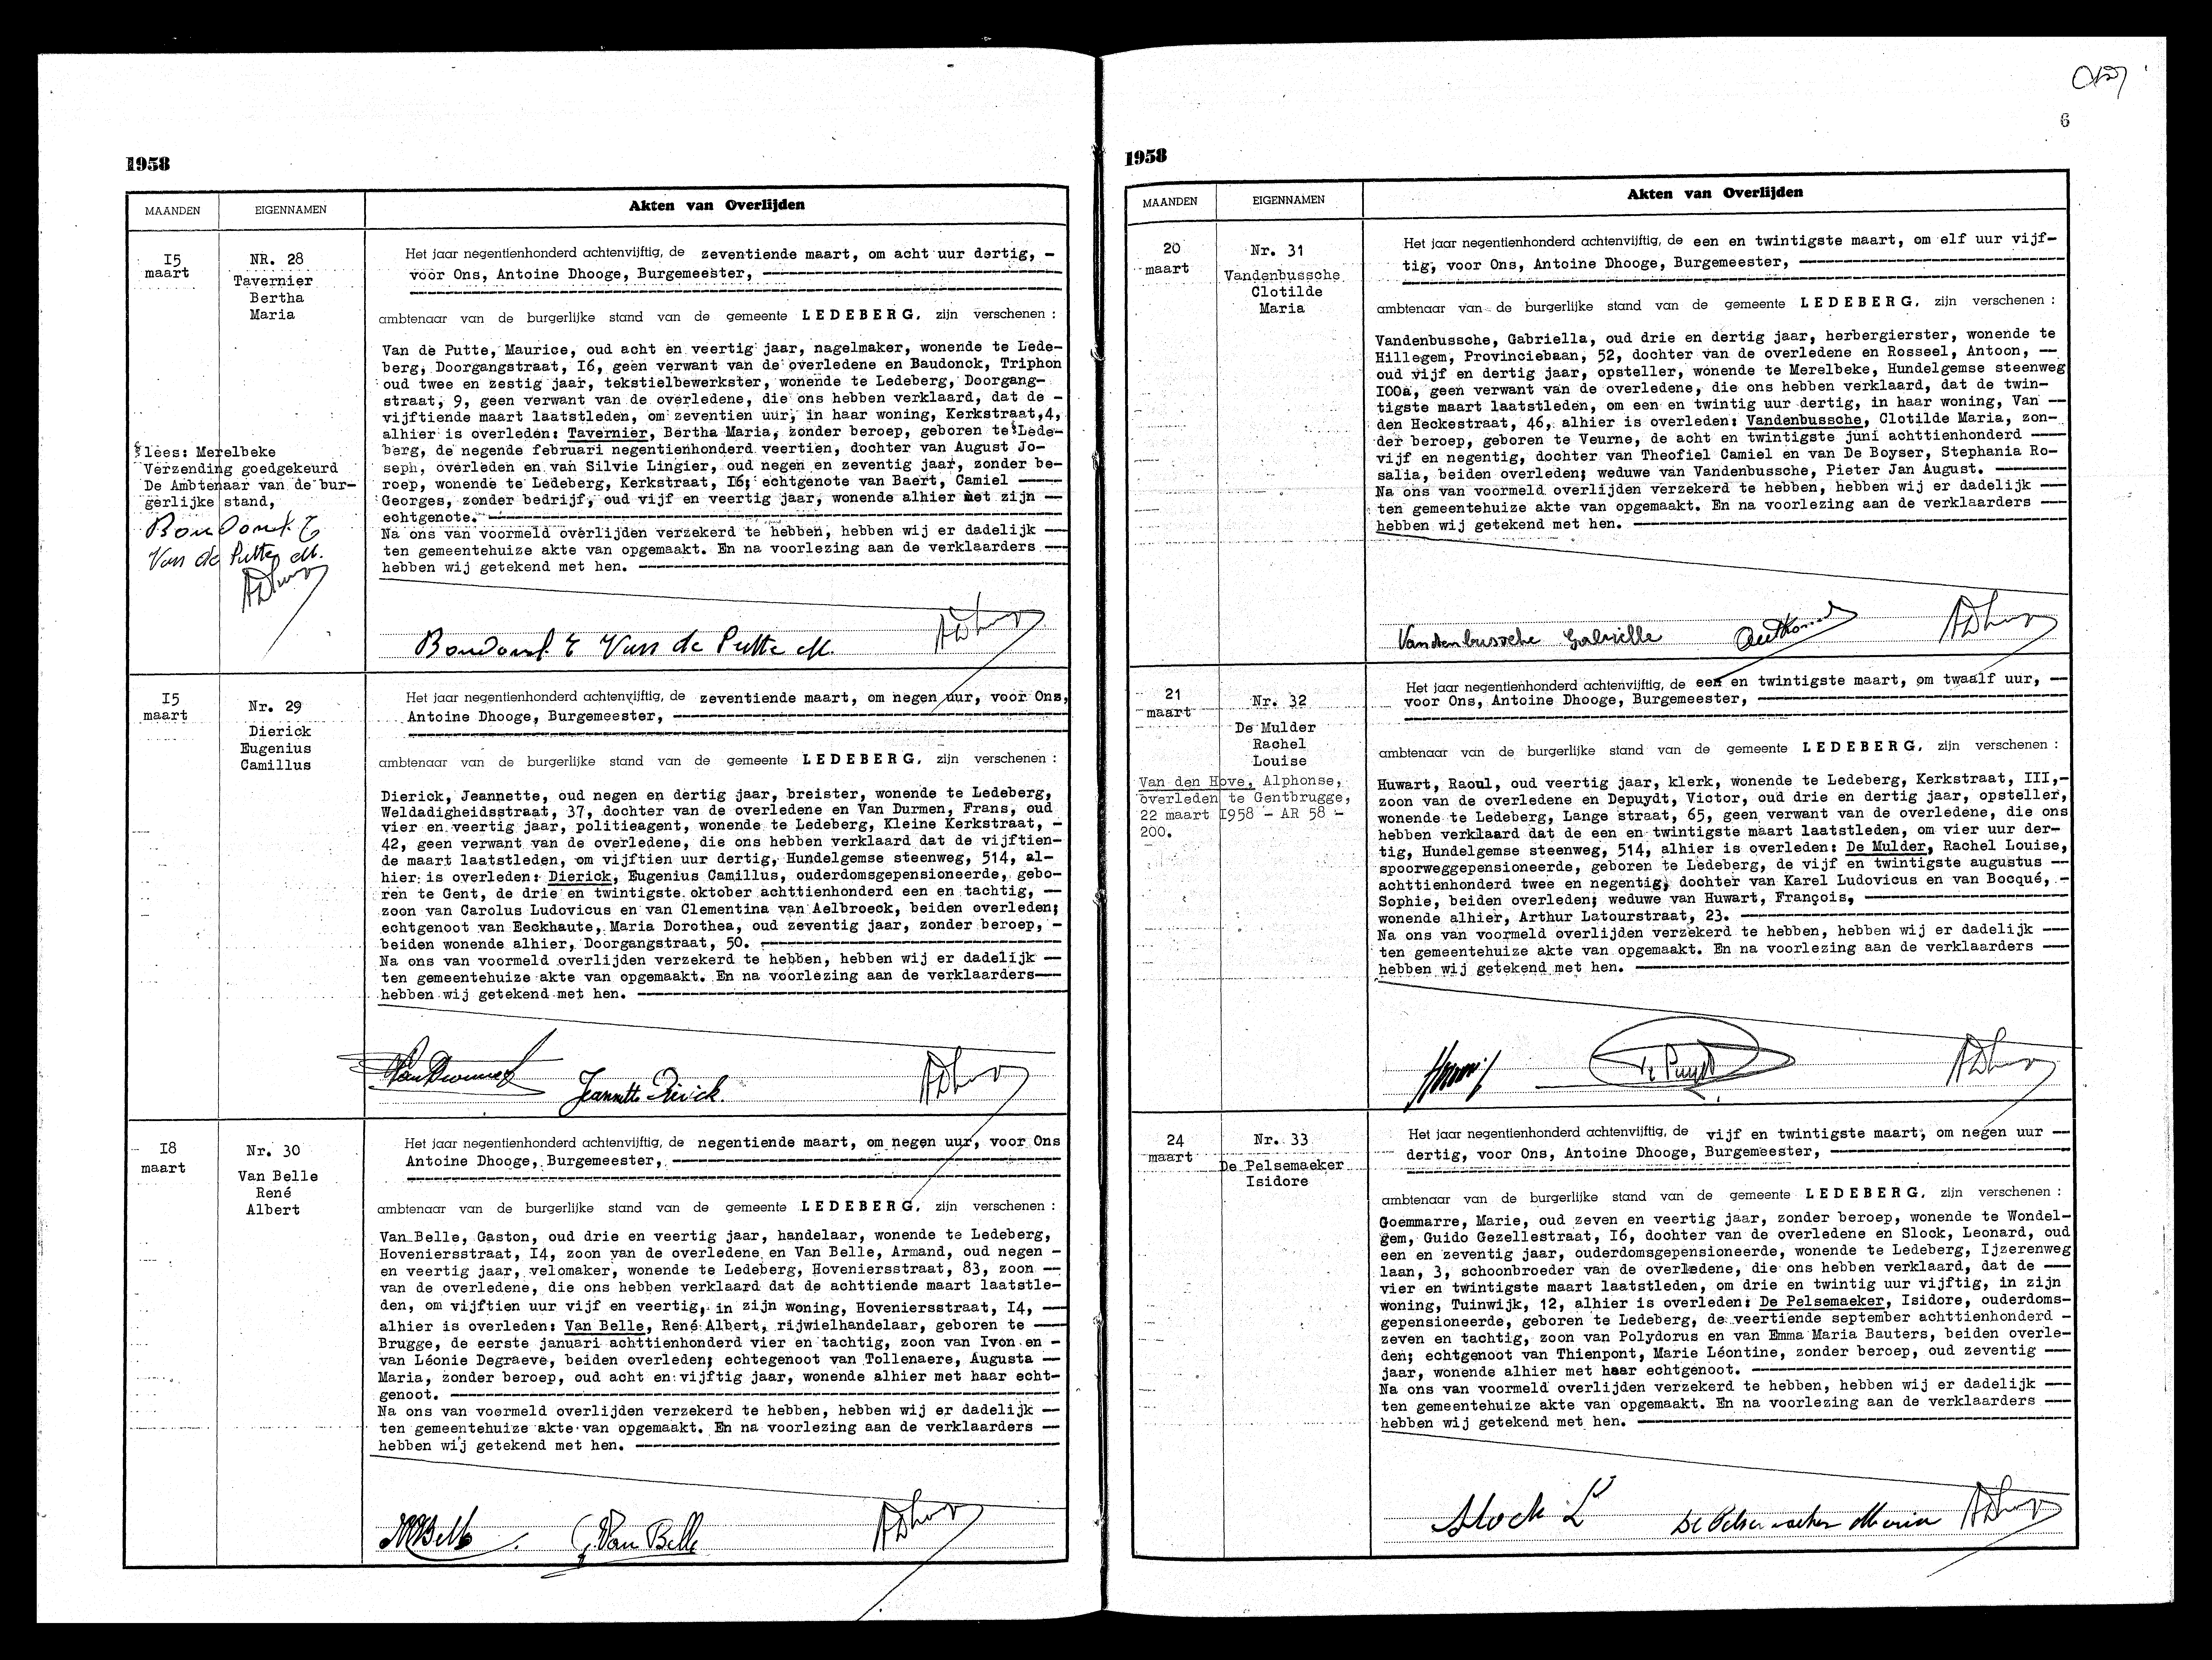 6
1958
MAANDEN
EIGENNAMEN
Akten van Overlijden
15
maart
NR. 28
Tavernier
Bertha
Maria
lees: Merelbeke
Verzending goedgekeurd
De Ambtenaar van de bur-
gerlijke stand,
Van de Putte M.
Het jaar negentienhonderd achtenvijftig, de zeventiende maart, om acht uur dertig, -
voor Ons, Antoine Dhooge, Burgemeester,
ambtenaar van de burgerlijke stand van de gemeente LEDEBERG, zijn verschenen :
Van de Putte, Maurice, oud acht en veertig jaar, nagelmaker, wonende te Lede-
berg, Doorgangstraat, I6, geen verwant van de overledene en Baudonck, Triphon
oud twee en zestig jaar, tekstielbewerkster, wonende te Ledeberg, Doorgang-
straat, 9, geen verwant van de overledene, die ons hebben verklaard, dat de -
vijftiende maart laatstleden, om zeventien uur, in haar woning, Kerkstraat,4,
alhier is overleden: Tavernier, Bertha Maria, zonder beroep, geboren te Lede-
berg, de negende februari negentienhonderd veertien, dochter van August Jo-
seph, overleden en van Silvie Lingier, oud negen en zeventig jaar, zonder be-
roep, wonende te Ledeberg, Kerkstraat, I6; echtgenote van Baert, Camiel
Georges, zonder bedrijf, oud vijf en veertig jaar, wonende alhier met zijn
echtgenote.
Na ons van voormeld overlijden verzekerd te hebben, hebben wij er dadelijk
ten gemeentehuize akte van opgemaakt. En na voorlezing aan de verklaarders
hebben wij getekend met hen.
Van de Putte M.
I5
maart
Nr. 29
Dierick
Eugenius
Camillus
Het jaar negentienhonderd achtenvijftig, de zeventiende maart, om negen uur, voor Ons,
Antoine Dhooge, Burgemeester,
ambtenaar van de burgerlijke stand van de gemeente LEDEBERG, zijn verschenen :
Dierick, Jeannette, oud negen en dertig jaar, breister, wonende te Ledeberg,
Weldadigheidsstraat, 37, dochter van de overledene en Van Durmen, Frans, oud
vier en veertig jaar, politieagent, wonende te Ledeberg, Kleine Kerkstraat, -
42, geen verwant van de overledene, die ons hebben verklaard dat de vijftien-
de maart laatstleden, om vijftien uur dertig, Hundelgemse steenweg, 514, al-
hier is overleden: Dierick, Eugenius Camillus, ouderdomsgepensioneerde, gebo-
ren te Gent, de drie en twintigste oktober achttienhonderd een en tachtig,
zoon van Carolus Ludovicus en van Clementina van Aelbroeck, beiden overleden;
echtgenoot van Eeckhaute, Maria Dorothea, oud zeventig jaar, zonder beroep, -
beiden wonende alhier, Doorgangstraat, 50.
Na ons van voormeld overlijden verzekerd te hebben, hebben wij er dadelijk
ten gemeentehuize akte van opgemaakt. En na voorlezing aan de verklaarders
hebben wij getekend met hen.
Jeannette Dierick.
I8
maart
Nr. 30
Van Belle
René
Albert
Het jaar negentienhonderd achtenvijftig, de negentiende maart, om negen uur, voor Ons
Antoine Dhooge, Burgemeester,
ambtenaar van de burgerlijke stand van de gemeente LEDEBERG, zijn verschenen :
Van Belle, Gaston, oud drie en veertig jaar, handelaar, wonende te Ledeberg,
Hoveniersstraat, I4, zoon van de overledene en Van Belle, Armand, oud negen -
en veertig jaar, velomaker, wonende te Ledeberg, Hoveniersstraat, 83, zoon
van de overledene, die ons hebben verklaard dat de achttiende maart laatstle-
den, om vijftien uur vijf en veertig, in zijn woning, Hoveniersstraat, I4,
alhier is overleden: Van Belle, René Albert, rijwielhandelaar, geboren te
Brugge, de eerste januari achttienhonderd vier en tachtig, zoon van Ivon en -
van Léonie Degraeve, beiden overleden; echtegenoot van Tollenaere, Augusta
Maria, zonder beroep, oud acht en vijftig jaar, wonende alhier met haar echt-
genoot.
Na ons van voormeld overlijden verzekerd te hebben, hebben wij er dadelijk
ten gemeentehuize akte van opgemaakt. En na voorlezing aan de verklaarders
hebben wij getekend met hen.
G. Van Belle
1958
MAANDEN
EIGENNAMEN
Akten van Overlijden
20
maart
Nr. 31
Vandenbussche
Clotilde
Maria
Het jaar negentienhonderd achtenvijftig, de een en twintigste maart, om elf uur vijf-
tig, voor Ons, Antoine Dhooge, Burgemeester,
ambtenaar van de burgerlijke stand van de gemeente LEDEBERG, zijn verschenen :
Vandenbussche, Gabriella, oud drie en dertig jaar, herbergierster, wonende te
Hillegem, Provinciebaan, 52, dochter van de overledene en Rosseel, Antoon,
oud vijf en dertig jaar, opsteller, wonende te Merelbeke, Hundelgemse steenweg
I00a, geen verwant van de overledene, die ons hebben verklaard, dat de twin-
tigste maart laatstleden, om een en twintig uur dertig, in haar woning, Van
den Heckestraat, 46, alhier is overleden: Vandenbussche, Clotilde Maria, zon-
der beroep, geboren te Veurne, de acht en twintigste juni achttienhonderd
vijf en negentig, dochter van Theofiel Camiel en van De Boyser, Stephania Ro-
salia, beiden overleden; weduwe van Vandenbussche, Pieter Jan August.
Na ons van voormeld overlijden verzekerd te hebben, hebben wij er dadelijk
ten gemeentehuize akte van opgemaakt. En na voorlezing aan de verklaarders
hebben wij getekend met hen.
Vandenbussche Gabriëlle
21
maart
Nr. 32
De Mulder
Rachel
Louise
Van den Hove, Alphonse,
overleden te Gentbrugge,
22 maart I958 - AR 58 -
200.
Het jaar negentienhonderd achtenvijftig, de een en twintigste maart, om twaalf uur,
voor Ons, Antoine Dhooge, Burgemeester,
ambtenaar van de burgerlijke stand van de gemeente LEDEBERG, zijn verschenen :
Huwart, Raoul, oud veertig jaar, klerk, wonende te Ledeberg, Kerkstraat, III,-
zoon van de overledene en Depuydt, Victor, oud drie en dertig jaar, opsteller,
wonende te Ledeberg, Lange straat, 65, geen verwant van de overledene, die ons
hebben verklaard dat de een en twintigste maart laatstleden, om vier uur der-
tig, Hundelgemse steenweg, 514, alhier is overleden: De Mulder, Rachel Louise,
spoorweggepensioneerde, geboren te Ledeberg, de vijf en twintigste augustus
achttienhonderd twee en negentig, dochter van Karel Ludovicus en van Bocqué, -
Sophie, beiden overleden; weduwe van Huwart, François,
wonende alhier, Arthur Latourstraat, 23.
Na ons van voormeld overlijden verzekerd te hebben, hebben wij er dadelijk
ten gemeentehuize akte van opgemaakt. En na voorlezing aan de verklaarders
hebben wij getekend met hen.
24
maart
Nr. 33
De Pelsemaeker
Isidore
Het jaar negentienhonderd achtenvijftig, de vijf en twintigste maart, om negen uur
dertig, voor Ons, Antoine Dhooge, Burgemeester,
ambtenaar van de burgerlijke stand van de gemeente LEDEBERG, zijn verschenen :
Goemmarre, Marie, oud zeven en veertig jaar, zonder beroep, wonende te Wondel-
gem, Guido Gezellestraat, I6, dochter van de overledene en Slock, Leonard, oud
een en zeventig jaar, ouderdomsgepensioneerde, wonende te Ledeberg, Ijzerenweg
laan, 3, schoonbroeder van de overledene, die ons hebben verklaard, dat de
vier en twintigste maart laatstleden, om drie en twintig uur vijftig, in zijn
woning, Tuinwijk, 12, alhier is overleden: De Pelsemaeker, Isidore, ouderdoms-
gepensioneerde, geboren te Ledeberg, de veertiende september achttienhonderd -
zeven en tachtig, zoon van Polydorus en van Emma Maria Bauters, beiden overle-
den; echtgenoot van Thienpont, Marie Léontine, zonder beroep, oud zeventig
jaar, wonende alhier met haar echtgenoot.
Na ons van voormeld overlijden verzekerd te hebben, hebben wij er dadelijk
ten gemeentehuize akte van opgemaakt. En na voorlezing aan de verklaarders
hebben wij getekend met hen.
Slock L
De Pelsemaeker Maria